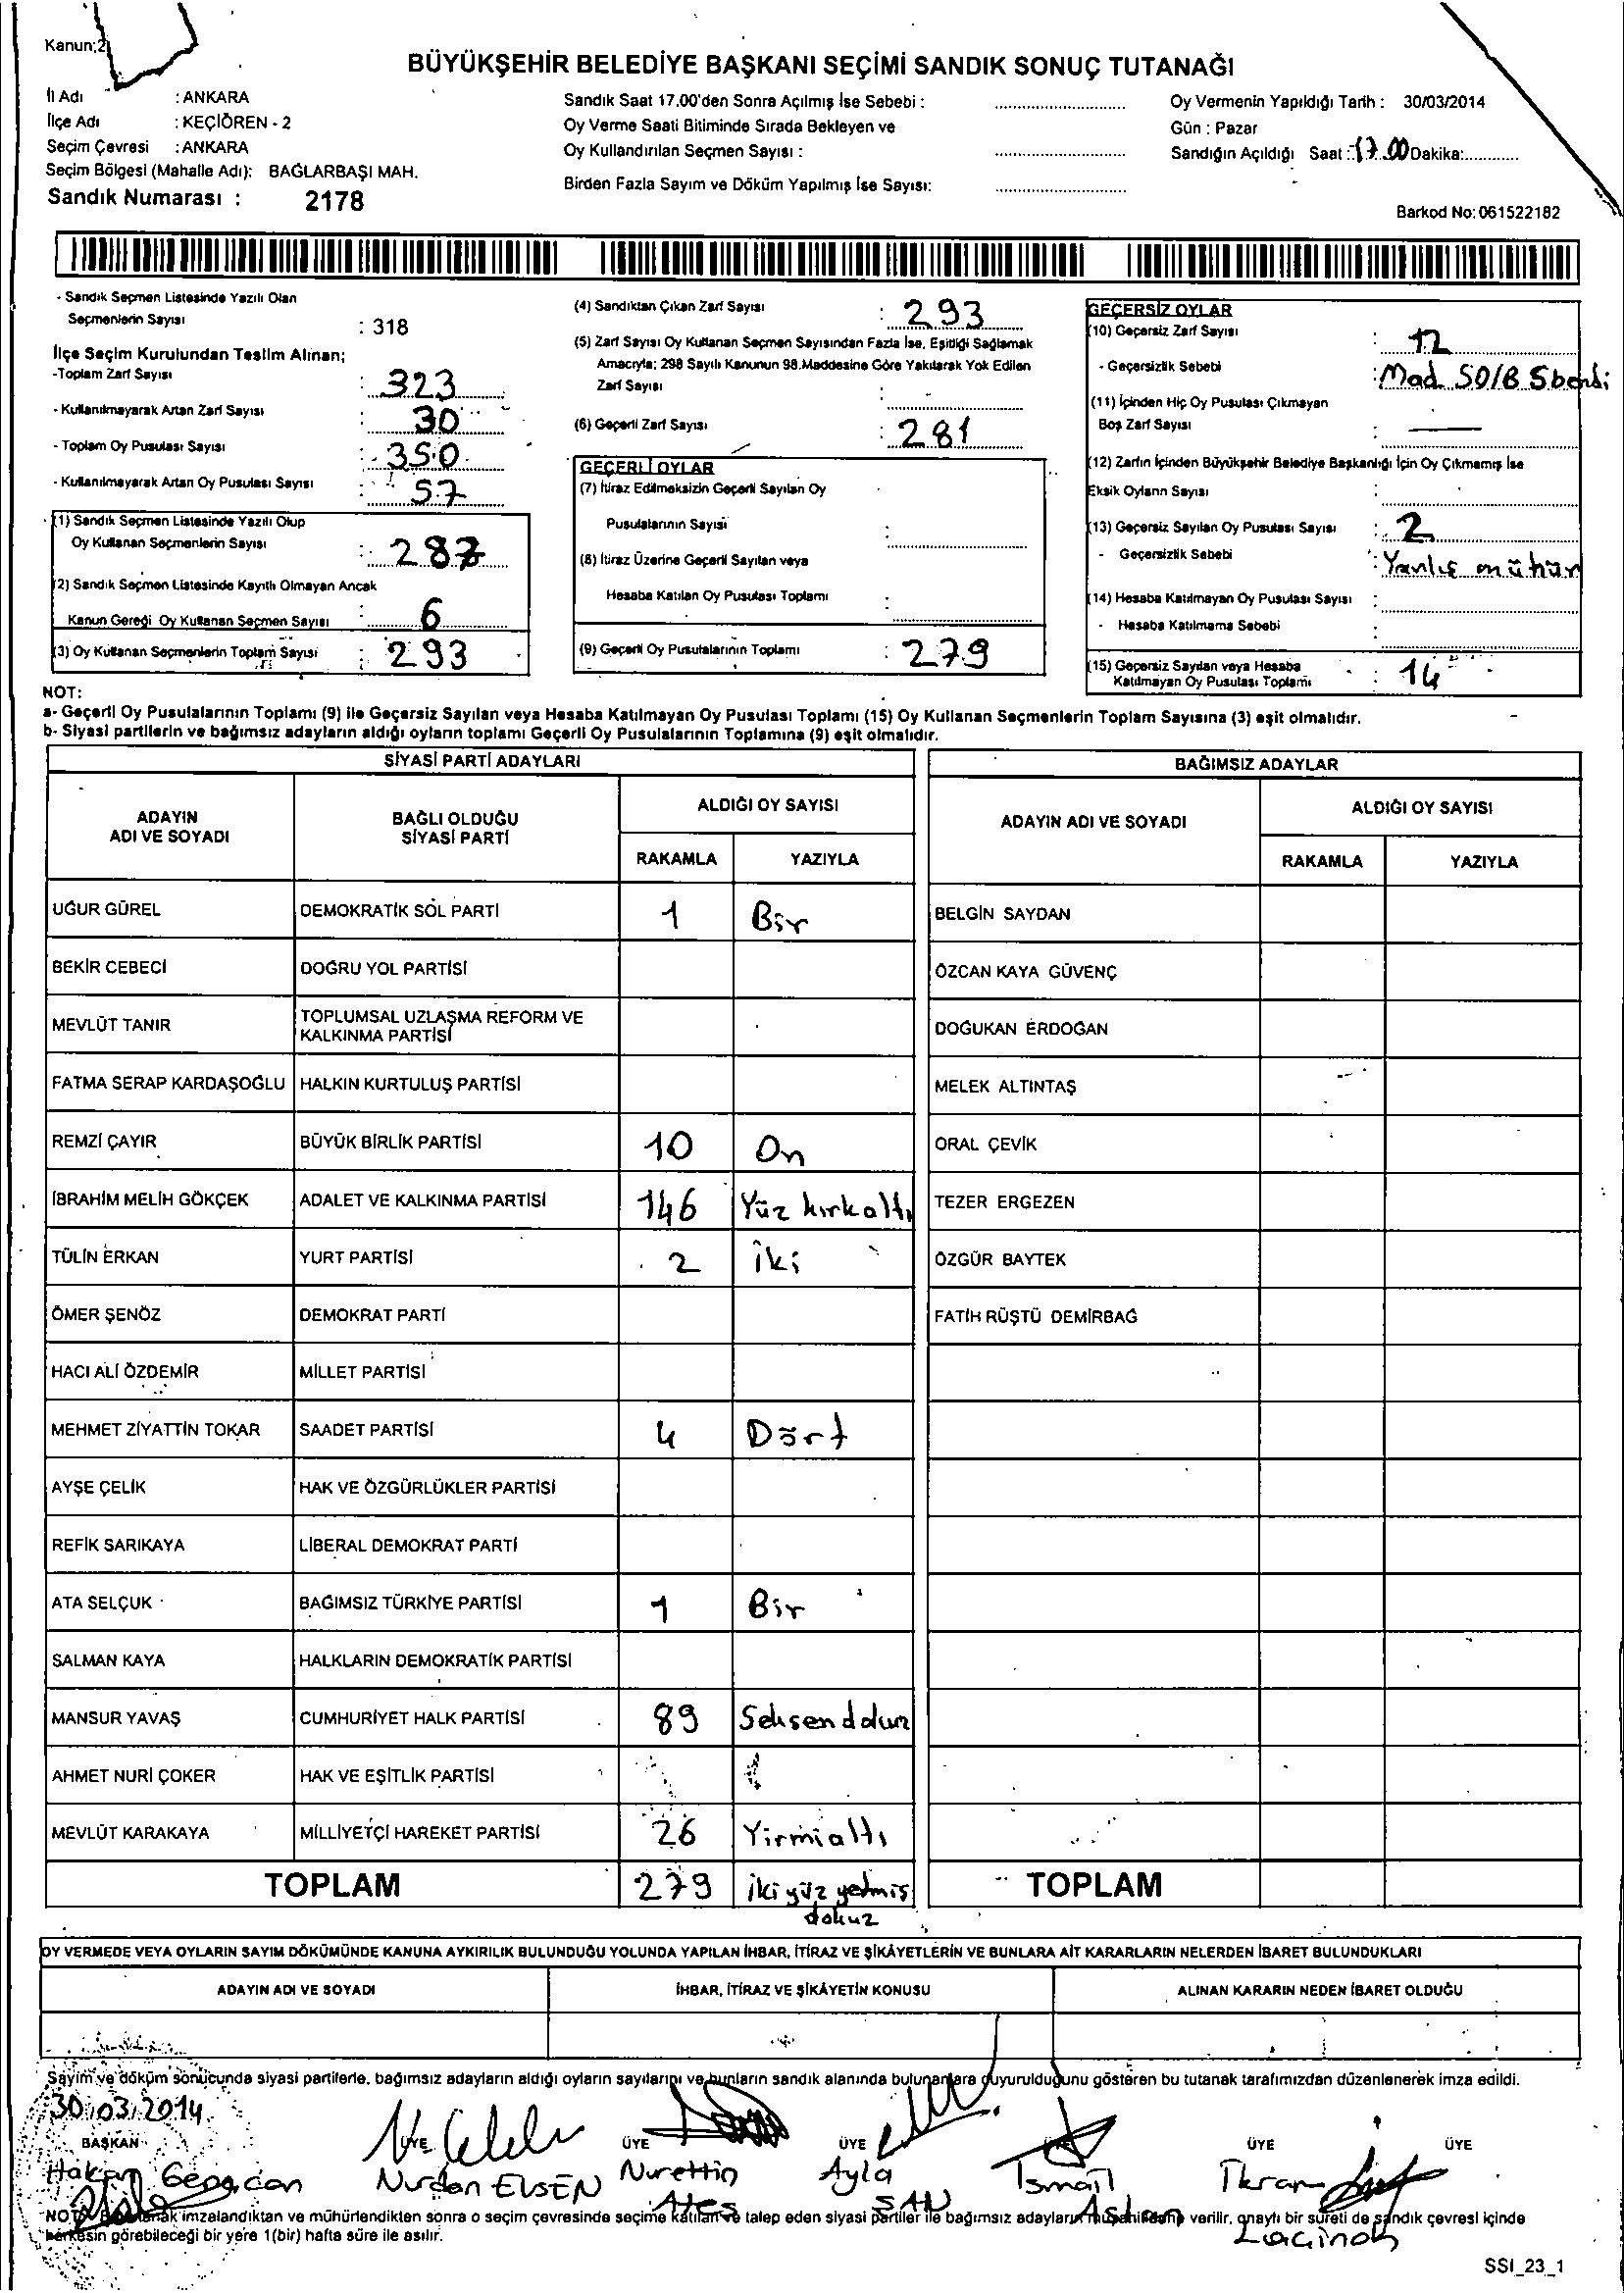 Kanun:2
BÜYÜKŞEHİR BELEDİYE BAŞKANI SEÇİMİ SANDIK SONUÇ TUTANAĞI
İl Adı : ANKARA
İlçe Adı : KEÇİÖREN - 2
Seçim Çevresi : ANKARA
Seçim Bölgesi (Mahalle Adı): BAĞLARBAŞI MAH.
Sandık Numarası : 2178
Sandık Saat 17.00'den Sonra Açılmış İse Sebebi :
Oy Verme Saati Bitiminde Sırada Bekleyen ve
Oy Kullandırılan Seçmen Sayısı :
Birden Fazla Sayım ve Döküm Yapılmış İse Sayısı:
Oy Vermenin Yapıldığı Tarih : 30/03/2014
Gün : Pazar
Sandığın Açıldığı Saat : 17.00 Dakika:
Barkod No: 061522182
- Sandık Seçmen Listesinde Yazılı Olan
Seçmenlerin Sayısı : 318
İlçe Seçim Kurulundan Teslim Alınan;
-Toplam Zarf Sayısı : 323
- Kullanılmayarak Artan Zarf Sayısı : 30
- Toplam Oy Pusulası Sayısı : 350
- Kullanılmayarak Artan Oy Pusulası Sayısı : 57
(1) Sandık Seçmen Listesinde Yazılı Olup
Oy Kullanan Seçmenlerin Sayısı : 287
(2) Sandık Seçmen Listesinde Kayıtlı Olmayan Ancak
Kanun Gereği Oy Kullanan Seçmen Sayısı : 6
(3) Oy Kullanan Seçmenlerin Toplam Sayısı : 293
(4) Sandıktan Çıkan Zarf Sayısı : 293
(5) Zarf Sayısı Oy Kullanan Seçmen Sayısından Fazla İse, Eşitliği Sağlamak
Amacıyla; 298 Sayılı Kanunun 98.Maddesine Göre Yakılarak Yok Edilen
Zarf Sayısı :
(6) Geçerli Zarf Sayısı : 281
GEÇERLİ OYLAR
(7) İtiraz Edilmeksizin Geçerli Sayılan Oy
Pusulalarının Sayısı :
(8) İtiraz Üzerine Geçerli Sayılan veya
Hesaba Katılan Oy Pusulası Toplamı :
(9) Geçerli Oy Pusulalarının Toplamı : 279
GEÇERSİZ OYLAR
(10) Geçersiz Zarf Sayısı : 12
- Geçersizlik Sebebi : Mad. 50/B 5bendi
(11) İçinden Hiç Oy Pusulası Çıkmayan
Boş Zarf Sayısı : —
(12) Zarfın İçinden Büyükşehir Belediye Başkanlığı İçin Oy Çıkmamış İse
Eksik Oyların Sayısı :
(13) Geçersiz Sayılan Oy Pusulası Sayısı : 2
- Geçersizlik Sebebi : Yanlış mühür
(14) Hesaba Katılmayan Oy Pusulası Sayısı :
- Hesaba Katılmama Sebebi :
(15) Geçersiz Sayılan veya Hesaba
Katılmayan Oy Pusulası Toplamı : 14
NOT:
a- Geçerli Oy Pusulalarının Toplamı (9) ile Geçersiz Sayılan veya Hesaba Katılmayan Oy Pusulası Toplamı (15) Oy Kullanan Seçmenlerin Toplam Sayısına (3) eşit olmalıdır.
b- Siyasi partilerin ve bağımsız adayların aldığı oyların toplamı Geçerli Oy Pusulalarının Toplamına (9) eşit olmalıdır.
SİYASİ PARTİ ADAYLARI
ADAYIN ADI VE SOYADI
BAĞLI OLDUĞU SİYASİ PARTİ
ALDIĞI OY SAYISI
RAKAMLA YAZIYLA
UĞUR GÜREL DEMOKRATİK SOL PARTİ 1 Bir
BEKİR CEBECİ DOĞRU YOL PARTİSİ
MEVLÜT TANIR TOPLUMSAL UZLAŞMA REFORM VE
KALKINMA PARTİSİ
FATMA SERAP KARDAŞOĞLU HALKIN KURTULUŞ PARTİSİ
REMZİ ÇAYIR BÜYÜK BİRLİK PARTİSİ 10 On
İBRAHİM MELİH GÖKÇEK ADALET VE KALKINMA PARTİSİ 146 Yüz kırkaltı
TÜLİN ERKAN YURT PARTİSİ 2 İki
ÖMER ŞENÖZ DEMOKRAT PARTİ
HACI ALİ ÖZDEMİR MİLLET PARTİSİ
MEHMET ZİYATTİN TOKAR SAADET PARTİSİ 4 Dört
AYŞE ÇELİK HAK VE ÖZGÜRLÜKLER PARTİSİ
REFİK SARIKAYA LİBERAL DEMOKRAT PARTİ
ATA SELÇUK BAĞIMSIZ TÜRKİYE PARTİSİ 1 Bir
SALMAN KAYA HALKLARIN DEMOKRATİK PARTİSİ
MANSUR YAVAŞ CUMHURİYET HALK PARTİSİ 89
AHMET NURİ ÇOKER HAK VE EŞİTLİK PARTİSİ
MEVLÜT KARAKAYA MİLLİYETÇİ HAREKET PARTİSİ 26 Yirmialtı
TOPLAM 279 ikiyüz yetmiş
dokuz
BAĞIMSIZ ADAYLAR
ADAYIN ADI VE SOYADI
ALDIĞI OY SAYISI
RAKAMLA YAZIYLA
BELGİN SAYDAN
ÖZCAN KAYA GÜVENÇ
DOĞUKAN ERDOĞAN
MELEK ALTINTAŞ
ORAL ÇEVİK
TEZER ERGEZEN
ÖZGÜR BAYTEK
FATİH RÜŞTÜ DEMİRBAĞ
TOPLAM
OY VERMEDE VEYA OYLARIN SAYIM DÖKÜMÜNDE KANUNA AYKIRILIK BULUNDUĞU YOLUNDA YAPILAN İHBAR, İTİRAZ VE ŞİKÂYETLERİN VE BUNLARA AİT KARARLARIN NELERDEN İBARET BULUNDUKLARI
ADAYIN ADI VE SOYADI İHBAR, İTİRAZ VE ŞİKÂYETİN KONUSU ALINAN KARARIN NEDEN İBARET OLDUĞU
Sayım ve döküm sonucunda siyasi partilerle, bağımsız adayların aldığı oyların sayılarını ve bunların sandık alanında bulunanlara duyurulduğunu gösteren bu tutanak tarafımızdan düzenlenerek imza edildi.
30/03/2014
BAŞKAN ÜYE ÜYE ÜYE ÜYE ÜYE ÜYE
Hakan Nurdan ELSEN Nurettin Ateş Ayla SAN İsmail Aslan İkram
NOT: imzalandıktan ve mühürlendikten sonra o seçim çevresinde seçime katılan ve talep eden siyasi partiler ile bağımsız adayların müşahitlerine verilir, onaylı bir sureti de sandık çevresi içinde
herkesin görebileceği bir yere 1(bir) hafta süre ile asılır.
SSI_23_1